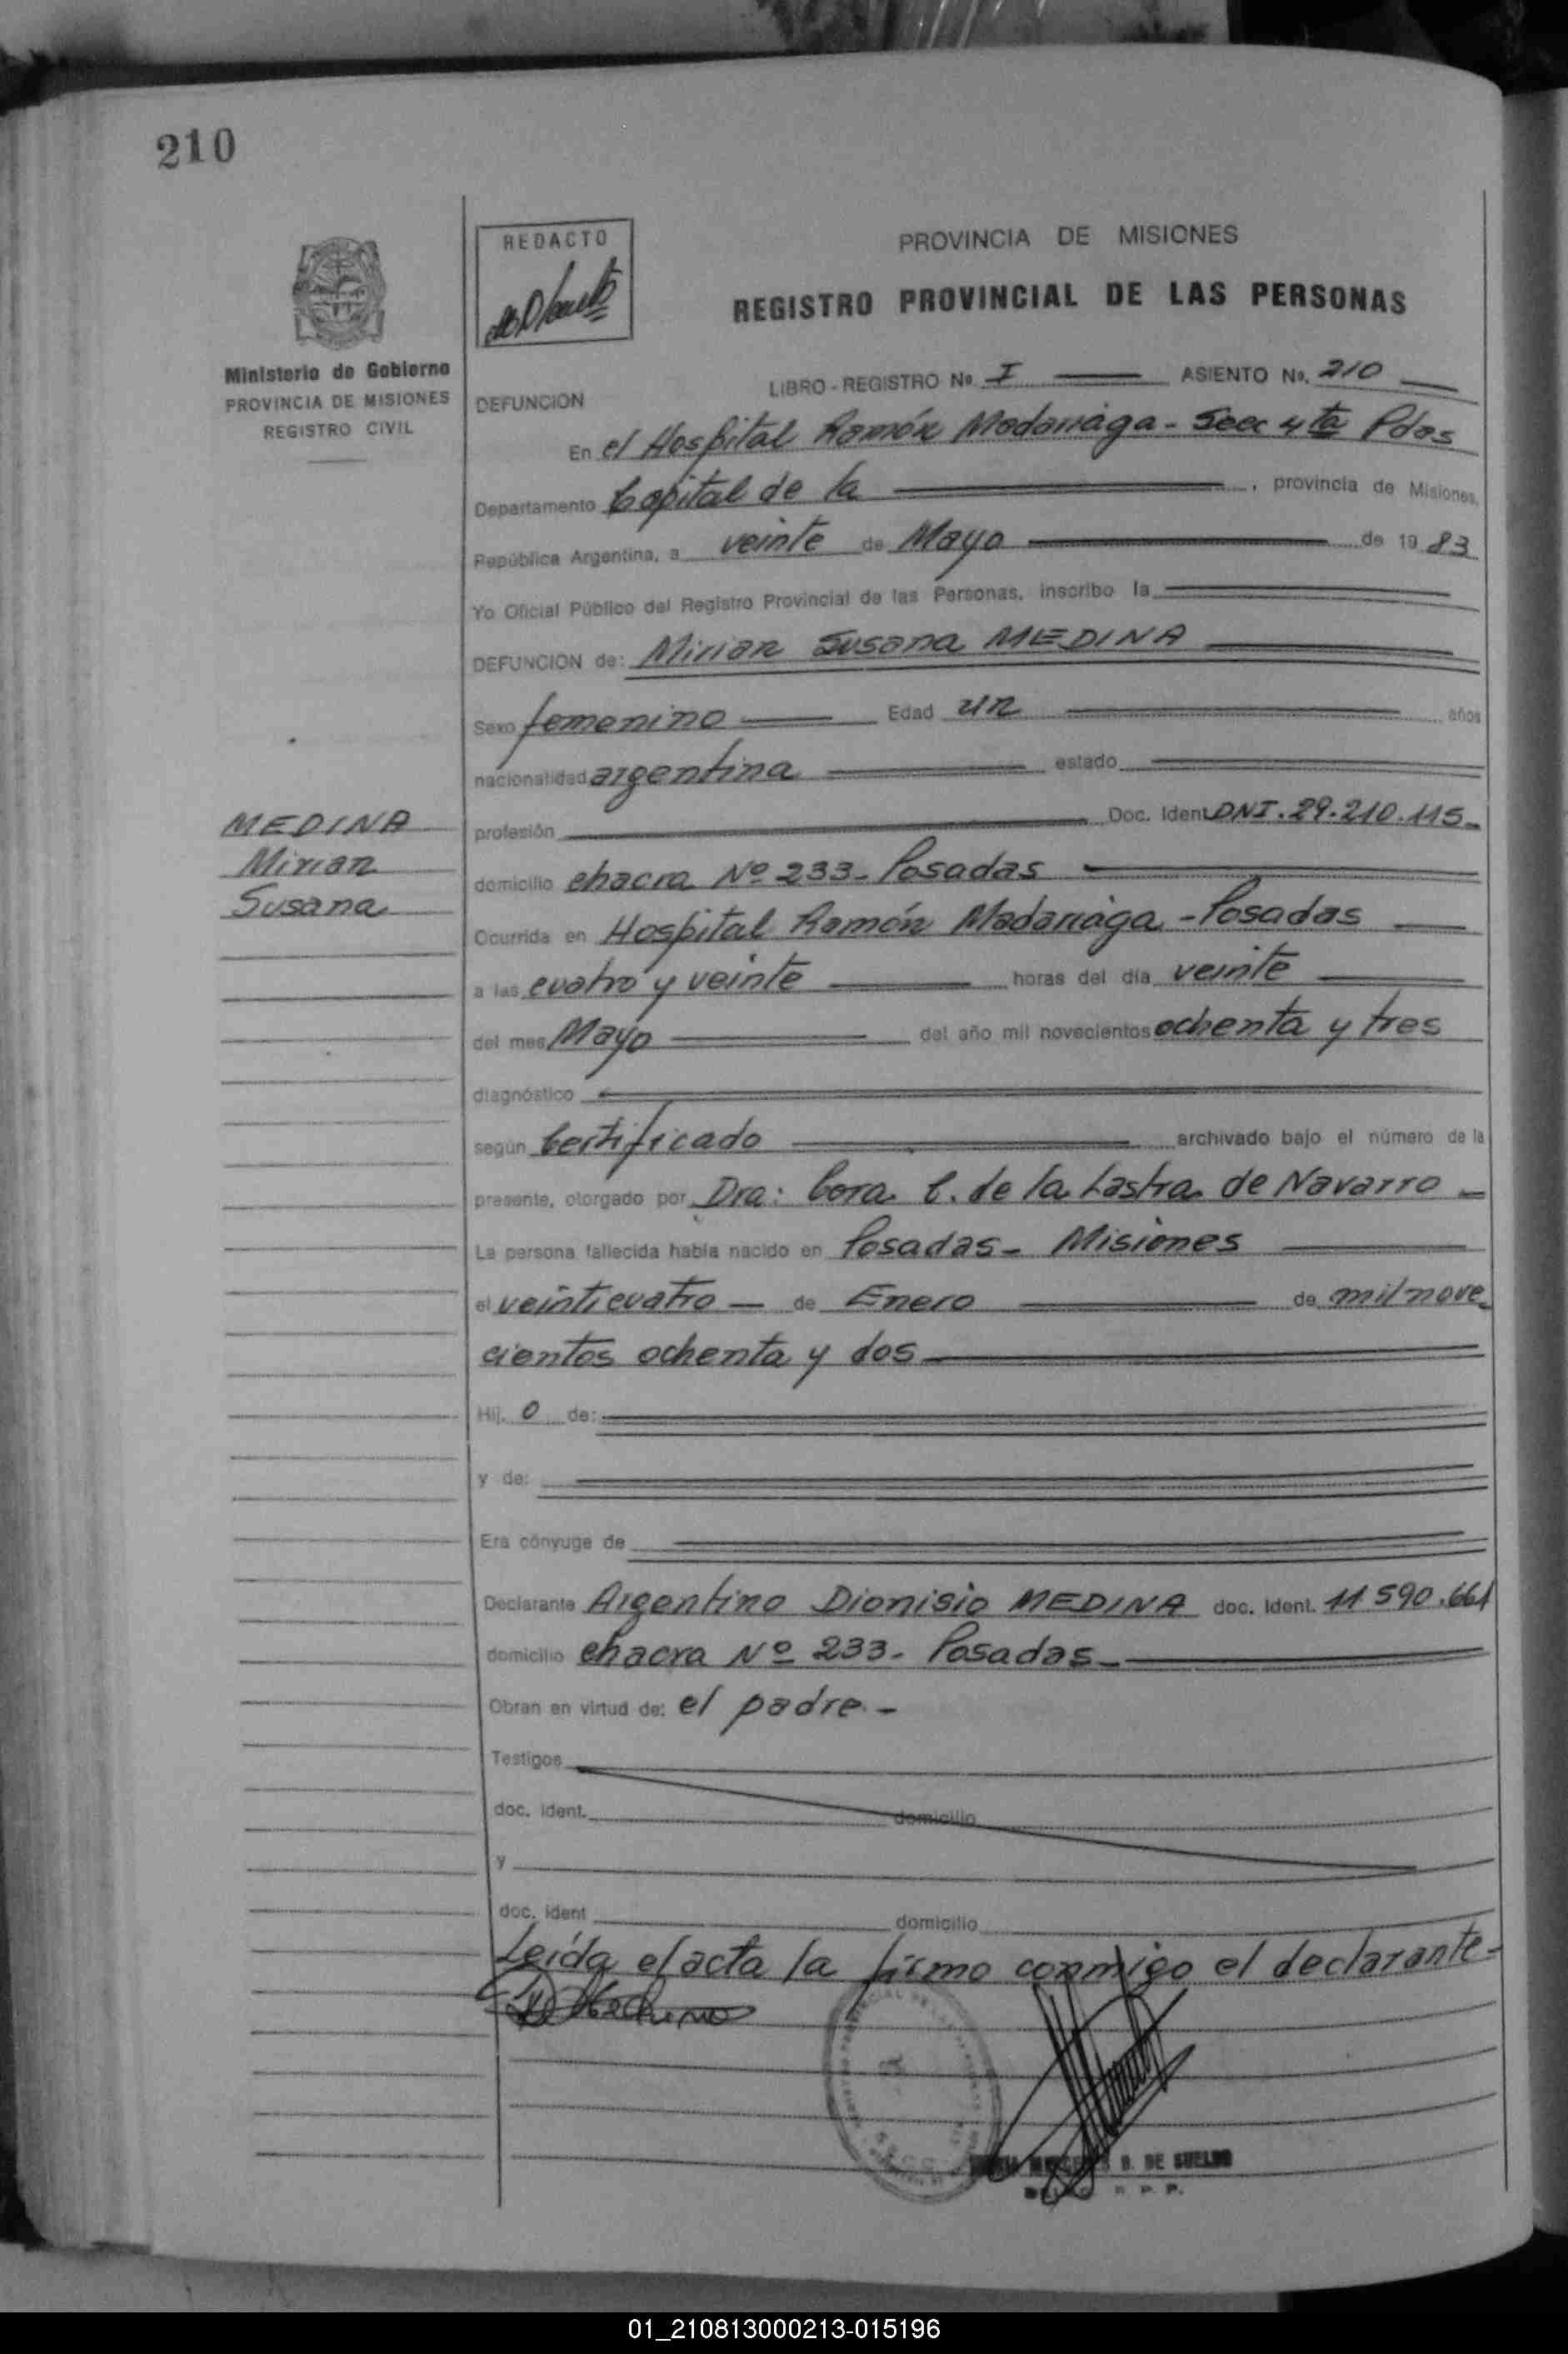 210
REDACTO
PROVINCIA DE MISIONES
REGISTRO PROVINCIAL DE LAS PERSONAS
Ministerio de Gobierno
PROVINCIA DE MISIONES
REGISTRO CIVIL
LIBRO - REGISTRO No. I ASIENTO No. 210
DEFUNCION
En el Hospital Ramón Madariaga - Secc 4ta Pdas
Departamento Capital de la , provincia de Misiones,
República Argentina, a veinte de Mayo de 1983
Yo Oficial Público del Registro Provincial de las Personas, inscribo la
DEFUNCION de: Mirian Susana MEDINA
Sexo femenino Edad un años
nacionalidad argentina estado
MEDINA
Mirian
Susana
profesión Doc. Ident DNI. 29.210.115-
domicilio chacra Nº 233- Posadas
Ocurrida en Hospital Ramón Madariaga - Posadas
a las cuatro y veinte horas del día veinte
del mes Mayo del año mil novecientos ochenta y tres
diagnóstico
según Certificado archivado bajo el número de la
presente, otorgado por Dra: Cora C. de la Lastra de Navarro -
La persona fallecida había nacido en Posadas- Misiones
el veinticuatro - de Enero de mil nove
cientos ochenta y dos
Hij. o de:
y de:
Era cónyuge de
Declarante Argentino Dionisio MEDINA doc. ident. 11 590.661
domicilio chacra Nº 233- Posadas-
Obran en virtud de: el padre.-
Testigos
doc. ident. domicilio
y
doc. ident domicilio
Leída el acta la firmo conmigo el declarante-
B. DE SUELDO
R. P. P.
01_210813000213-015196